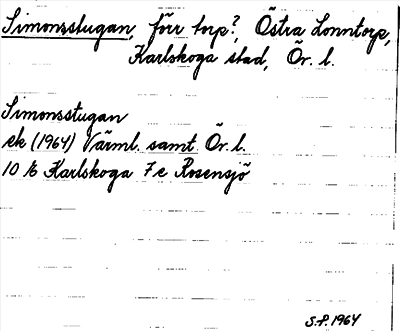 Simonsstugan, förr torp?, Östra Lonntorp,
Karlskoga stad, Ör. l.
Simonsstugan
ek (1964) Värml. samt Ör. l.
10 E Karlskoga 7 e Rosensjö
S.P. 1964